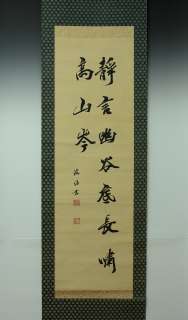 静言幽谷底長嘯
高山岑